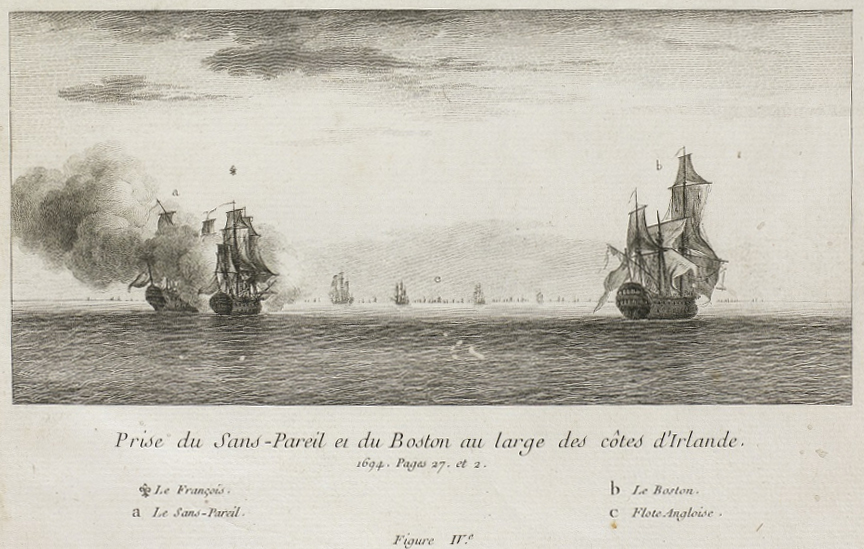 a
b
c
Prise du Sans-Pareil et du Boston au large des côtes d'Irlande.
1694. Pages 27. et 2.
Le François.
a Le Sans-Pareil.
b Le Boston.
c Flote Angloise.
Figure IV.e